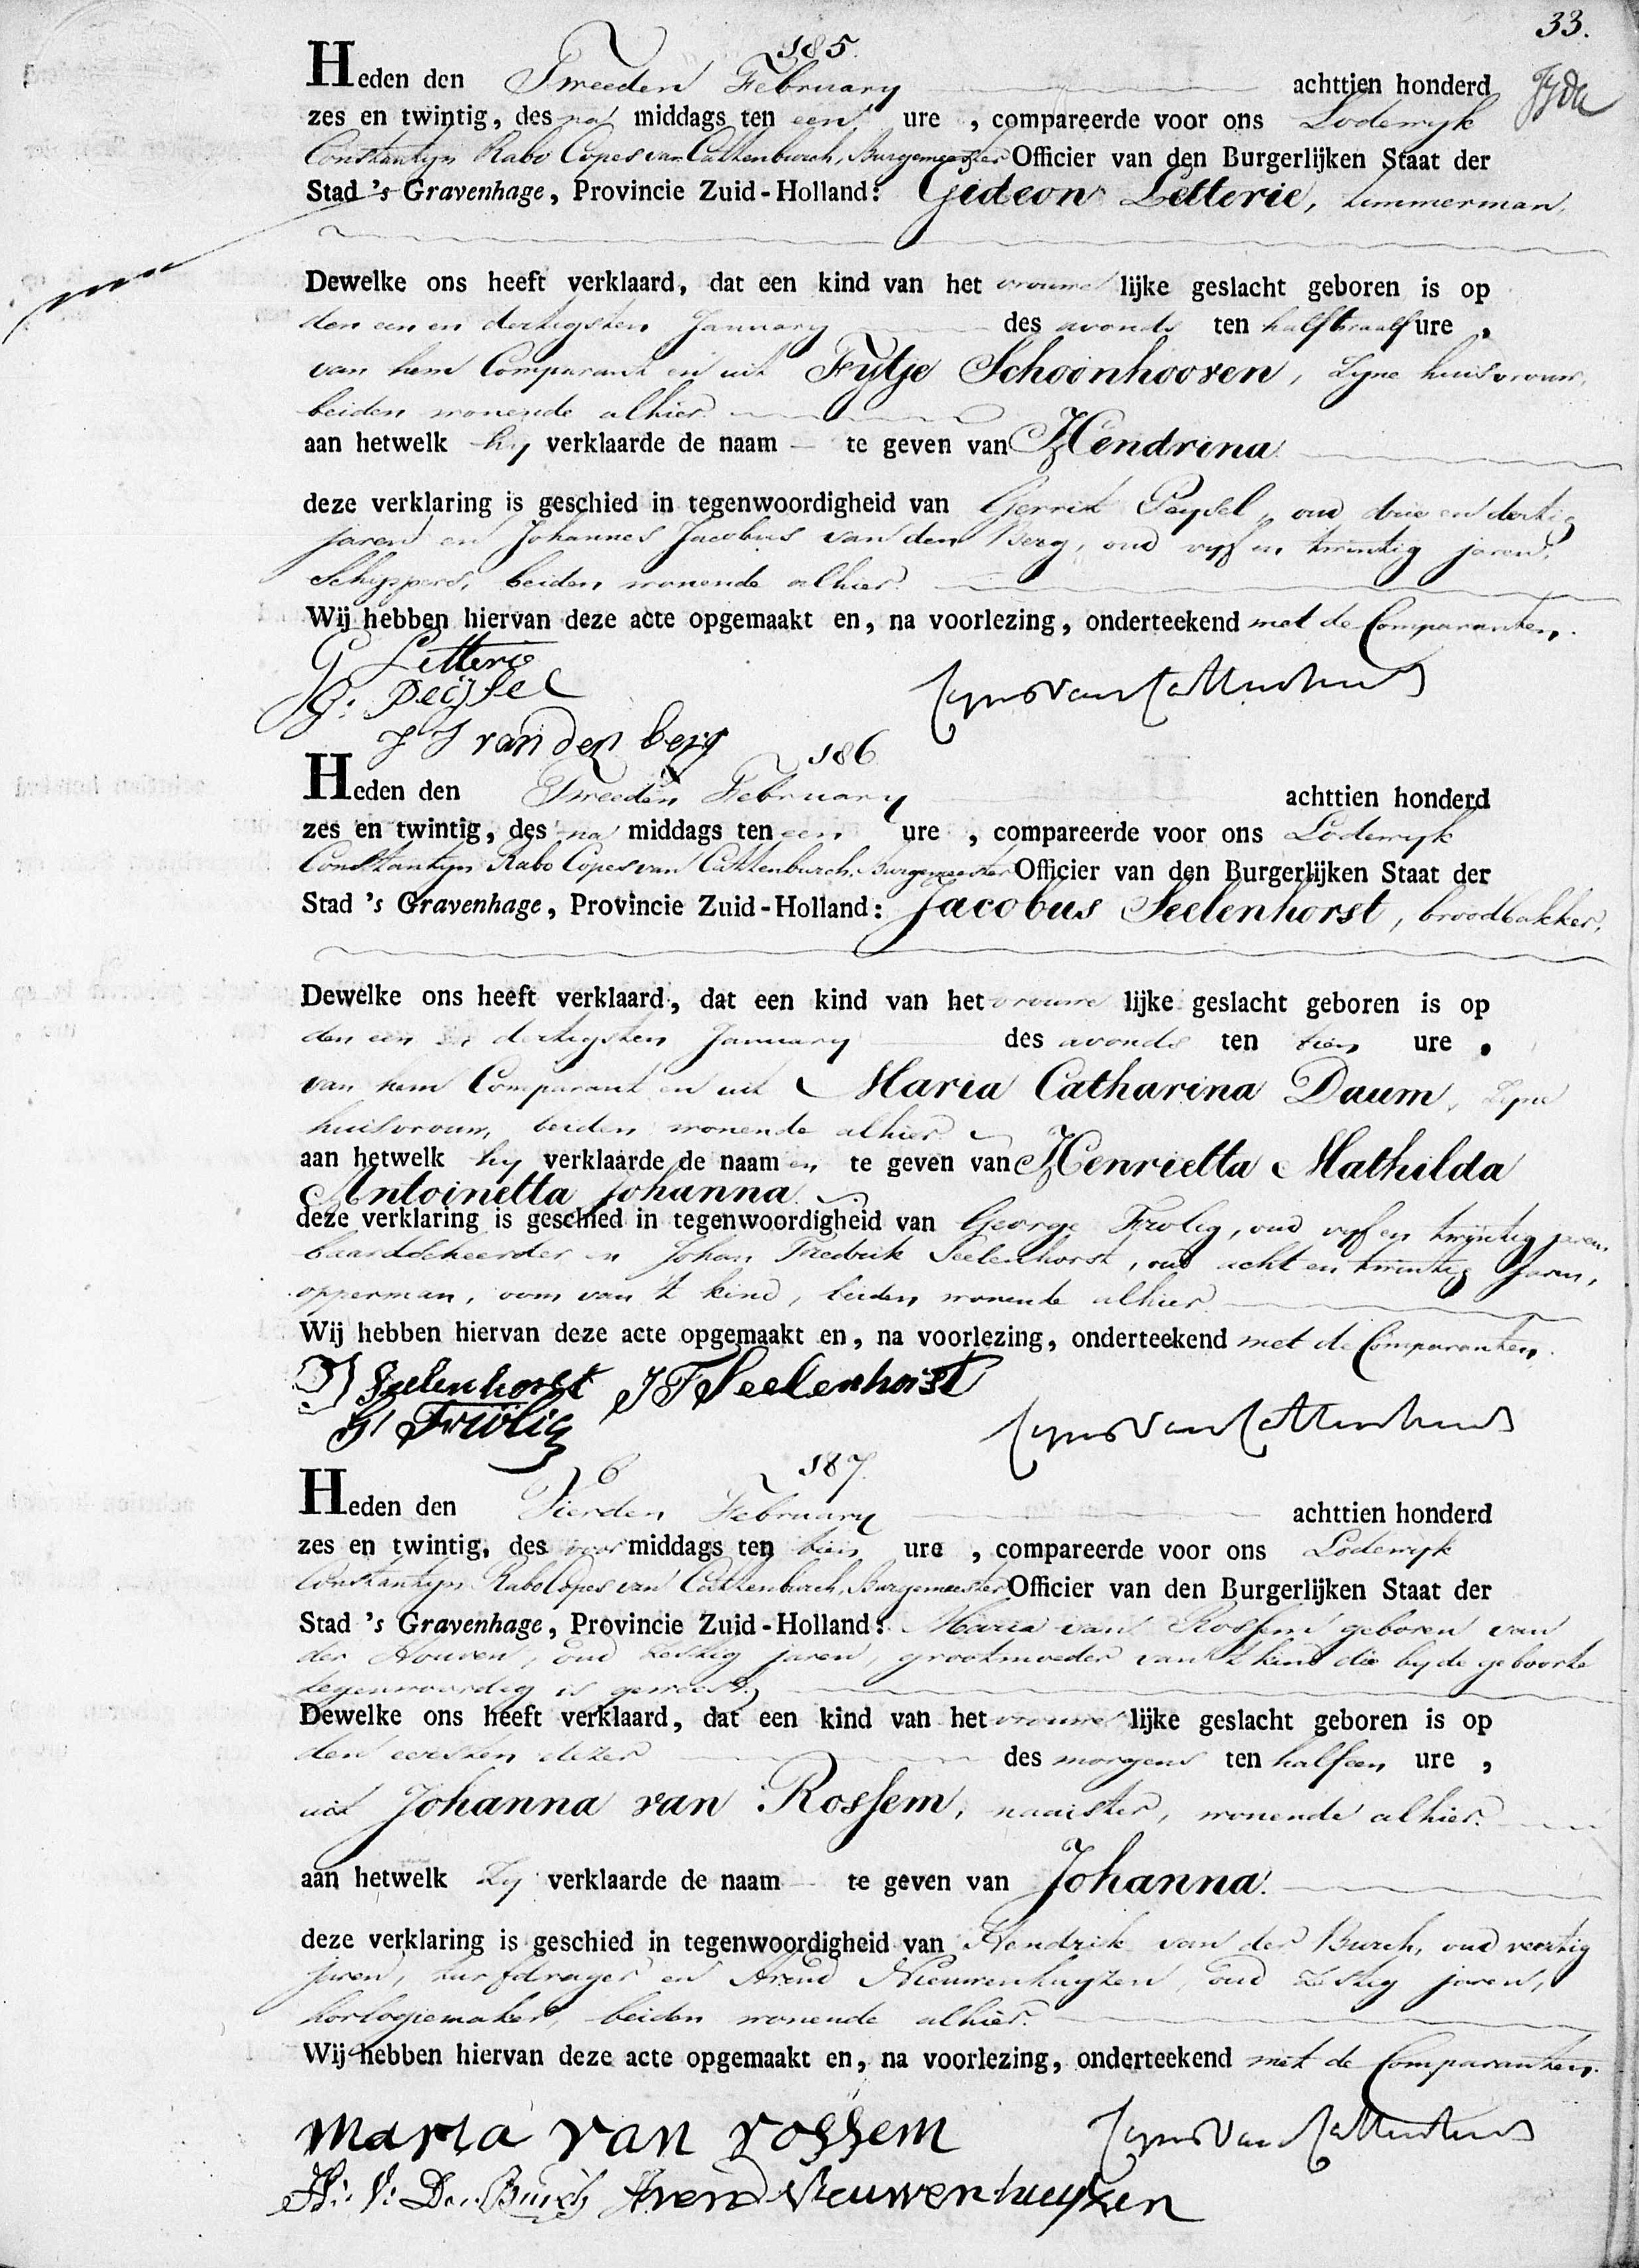 33.
185.
Heden den Tweeden February achttien honderd
zes en twintig, des na middags ten een ure , compareerde voor ons Lodewyk
Constantyn Rabo Copes van Cattenburch, Burgemeester Officier van den Burgerlijken Staat der
Stad 's Gravenhage, Provincie Zuid-Holland: Gideon Letterie, timmerman,
Dewelke ons heeft verklaard, dat een kind van het vrouwe lijke geslacht geboren is op
den een en dertigsten January des avonds ten half twaalf ure ,
van hem Comparant en uit Fytje Schoonhooven, zyne huisvrouw,
beiden wonende alhier.
aan hetwelk hy verklaarde de naam — te geven van Hendrina
deze verklaring is geschied in tegenwoordigheid van Gerrit Peysel, oud drie en dertig
jaren en Johannes Jacobus van den Berg, oud vyf en twintig jaren,
Schippers, beiden wonende alhier.
Wij hebben hiervan deze acte opgemaakt en, na voorlezing, onderteekend met de Comparanten.
G Letterie
G: Peijsel
Copes van Cattenburch
J J van den berg
186
Heden den Tweeden February achttien honderd
zes en twintig, des na middags ten een ure , compareerde voor ons Lodewyk
Constantyn Rabo Copes van Cattenburch, Burgemeester Officier van den Burgerlijken Staat der
Stad 's Gravenhage, Provincie Zuid-Holland: Jacobus Seelenhorst, broodbakker,
Dewelke ons heeft verklaard, dat een kind van het vrouwe lijke geslacht geboren is op
den een en dertigsten January des avonds ten tien ure ,
van hem Comparant en uit Maria Catharina Daum, zyne
huisvrouw, beiden wonende alhier
aan hetwelk hy verklaarde de naam en te geven van Henrietta Mathilda
Antoinetta Johanna
deze verklaring is geschied in tegenwoordigheid van George Frolig, oud vyf en twintig jaren,
baardscheerder en Johan Fredrik Seelenhorst, oud acht en twintig jaren,
opperman, oom van 't kind, beiden wonende alhier
Wij hebben hiervan deze acte opgemaakt en, na voorlezing, onderteekend met de Comparanten.
J Seelenhorst J F Seelenhorst
G Frölig
Copes van Cattenburch
187.
Heden den Vierden February achttien honderd
zes en twintig, des voor middags ten tien ure , compareerde voor ons Lodewyk
Constantyn Rabo Copes van Cattenburch, Burgemeester Officier van den Burgerlijken Staat der
Stad 's Gravenhage, Provincie Zuid-Holland: Maria van Rossem geboren van
der Houven, oud zestig jaren, grootmoeder van 't kind die by de geboorte
tegenwoordig is geweest,
Dewelke ons heeft verklaard, dat een kind van het vrouwe lijke geslacht geboren is op
den eersten dezer des morgens ten half een ure ,
uit Johanna van Rossem, naaister, wonende alhier.
aan hetwelk zy verklaarde de naam — te geven van Johanna.
deze verklaring is geschied in tegenwoordigheid van Hendrik van der Burch, oud veertig
jaren, turfdrager en Arend Nieuwenhuyzen, oud zestig jaren,
horlogiemaker, beiden wonende alhier.
Wij hebben hiervan deze acte opgemaakt en, na voorlezing, onderteekend met de Comparanten.
Maria van rossem Copes van Cattenburch
H: V: Der Burch Arend Nieuwenhuyzen